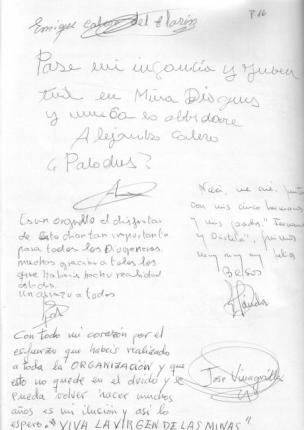 P.16
Enrique calero del Clarin
Pase mi infancia y juven
tud en Mina Diogenes
y nunca lo olvidare
Alejandro Calero
¿Palodus?
Es un orgullo el disfrutar
de este dia tan importante
para todos los Diogeneros.
muchas gracias a todos los
que habeis hecho realidad
este dia.
Un abrazo a todos
Naci, me crie, junto
con mis cinco hermanos
y mis padres
y fuimos
muy muy muy felices
Besos
Con todo mi corazón por el
esfuerzo que habeis realizado
a toda la ORGANIZACIÓN y que
esto no quede en el olvido y se
pueda volver hacer muchos
años es mi ilusión y asi lo
espero. "VIVA LA VIRGEN DE LAS MINAS"
Jose Vinagrillas